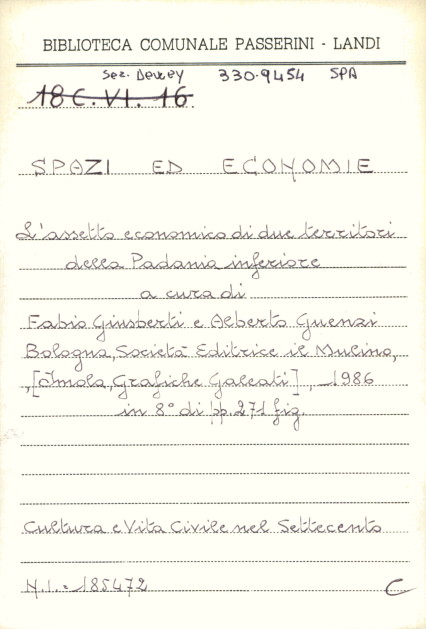 BIBLIOTECA COMUNALE PASSERINI - LANDI
Sez. Dewey 330.9454 SPA
18 C. VI. 16
SPAZI ED ECONOMIE
L'assetto economico di due territori
della Padania inferiore
a cura di
Fabio Giusberti e Alberto Guenzi
Bologna, Società Editrice il Mulino,
,[Imola, Grafiche Galeati], 1986
in 8° di pp. 271 fig.
Cultura e Vita Civile nel Settecento
N.I. = 185472 C